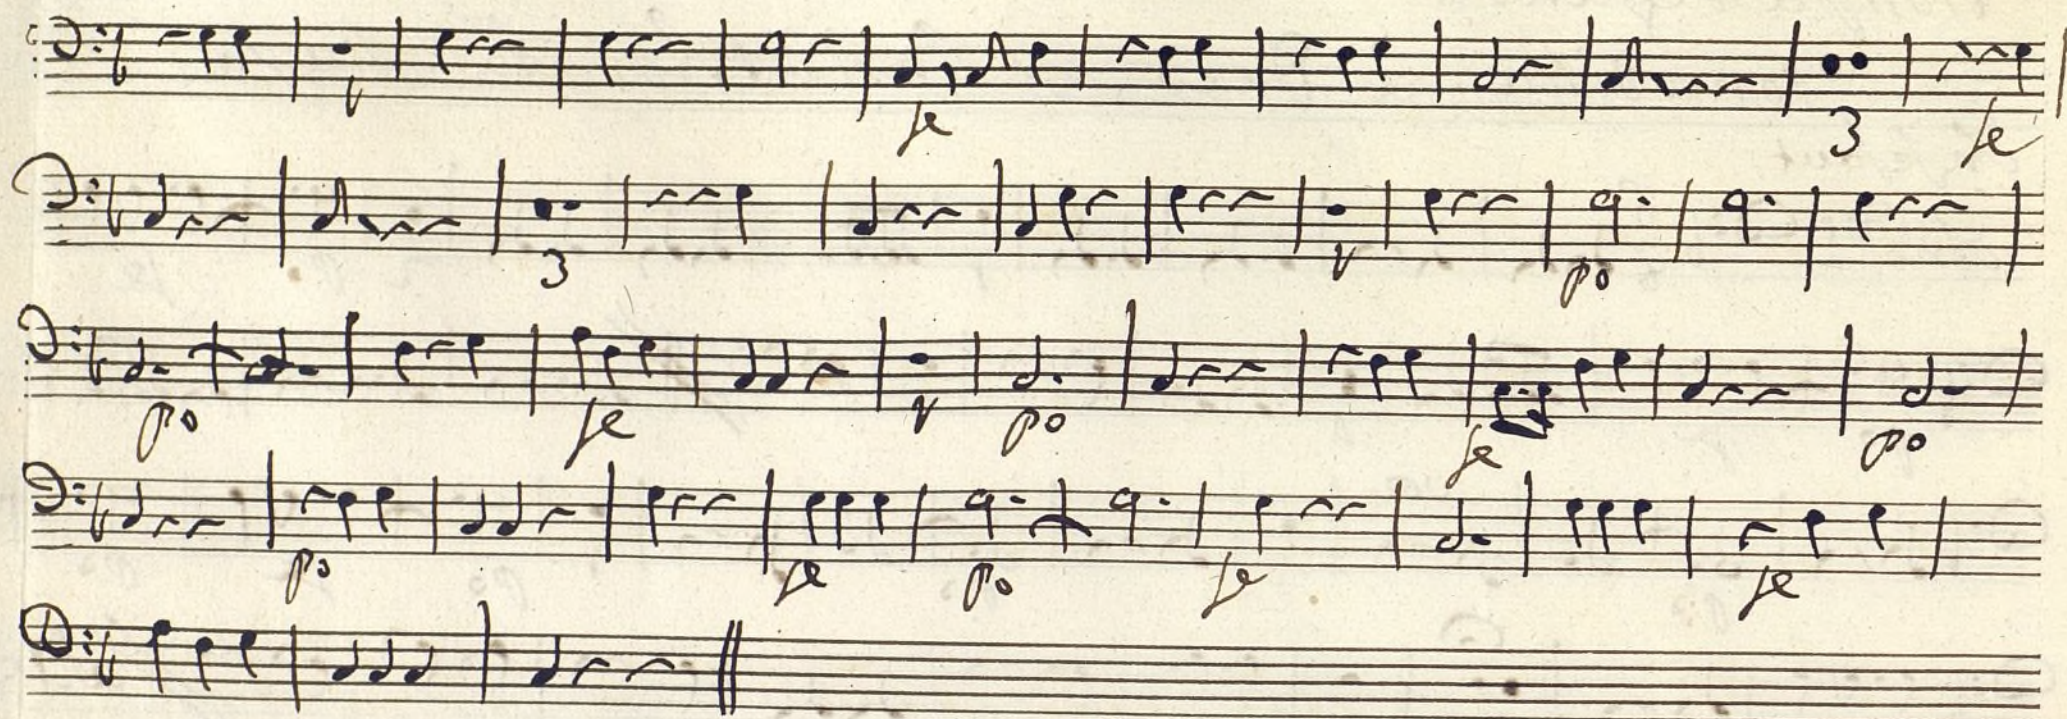 fe 3 fe
3 po
po fe po fe po
po fe po fe fe